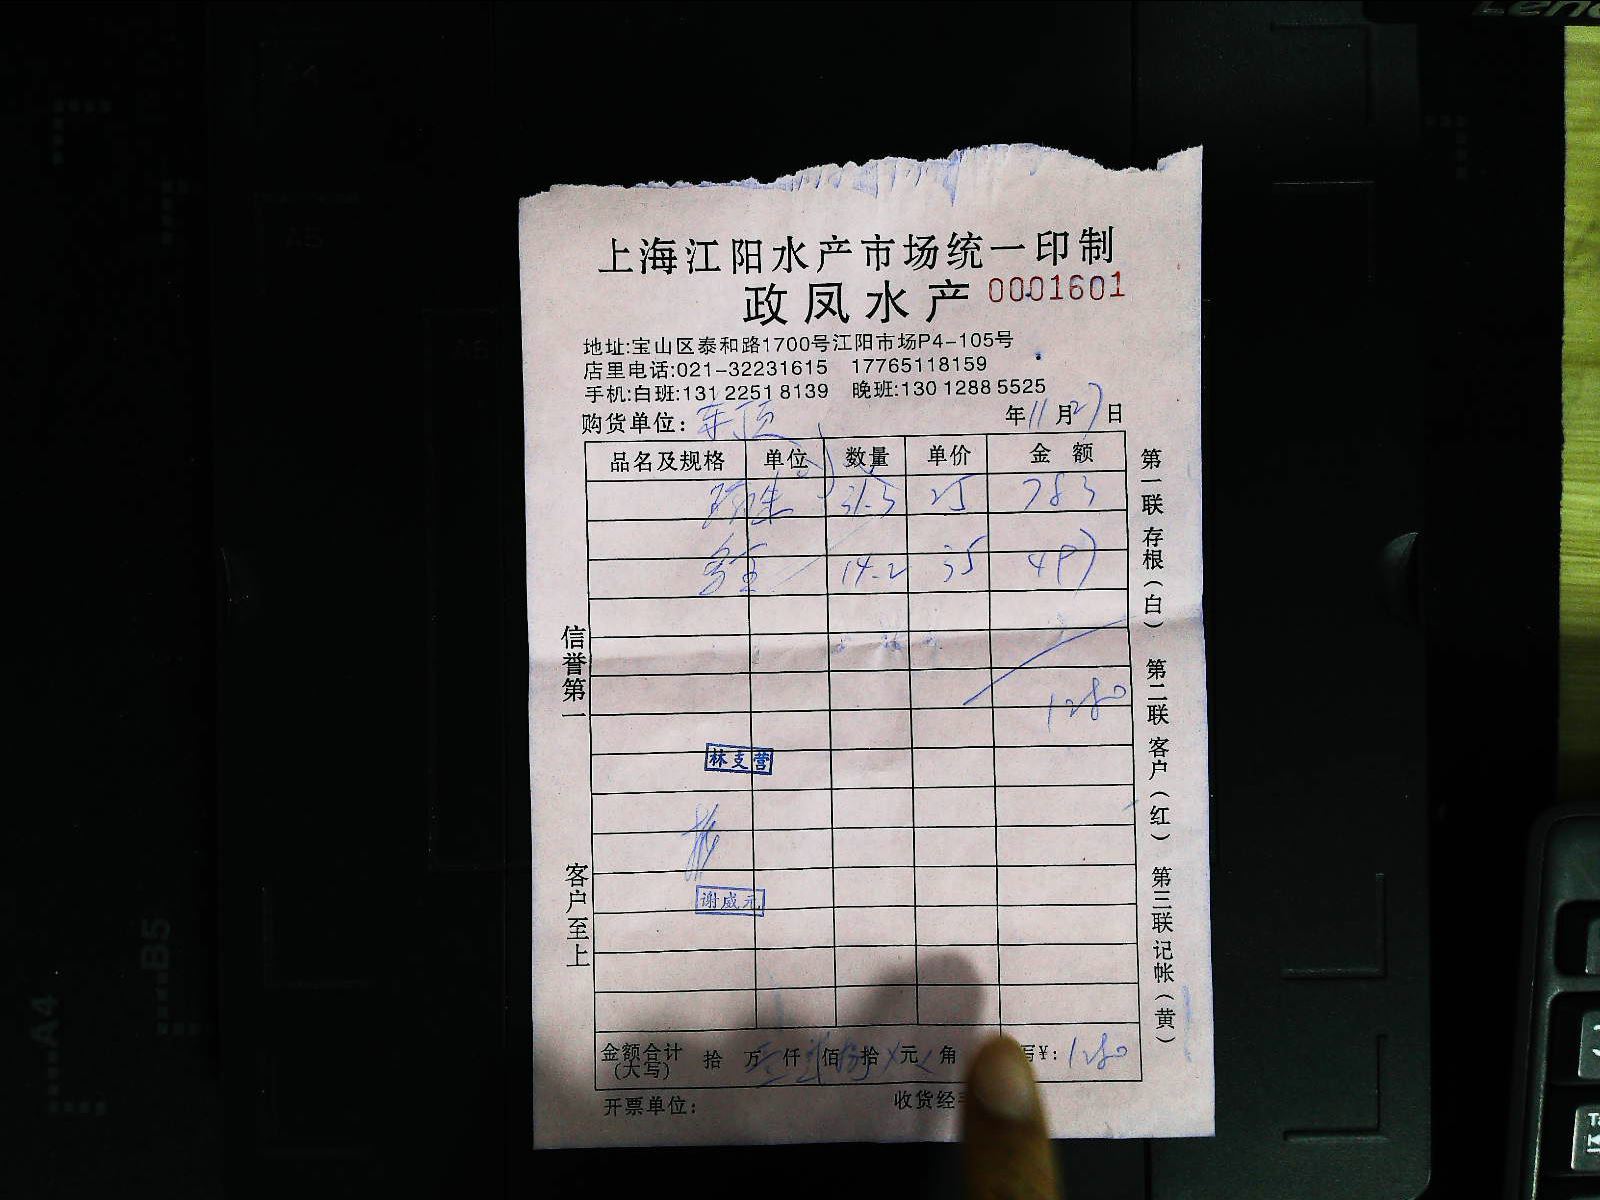 上海江阳水产市场统一印制
政凤水产 0001601
地址:宝山区泰和路1700号江阳市场P4-105号
店里电话:021-32231615 17765118159
手机:白班:131 2251 8139 晚班:130 1288 5525
购货单位: 年11月27日
品名及规格 单位 数量 单价 金额
31.3 25 783
14.2 35 497
1280
林支营
谢威元
金额合计(大写) 拾 万 仟 佰 拾 元 角 写¥: 1280
开票单位: 收货经
信誉第一
客户至上
第一联 存根(白) 第二联 客户(红) 第三联 记帐(黄)
Leno
A4
A5
B5
A4